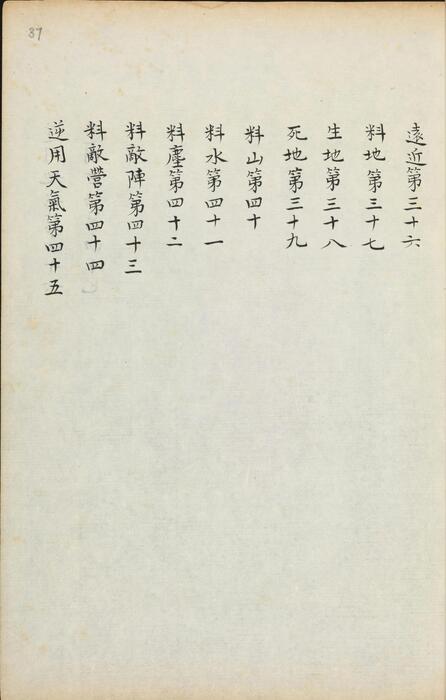 37
遠近第三十六
料地第三十七
生地第三十八
死地第三十九
料山第四十
料水第四十一
料塵第四十二
料敵陣第四十三
料敵營第四十四
逆用天氣第四十五